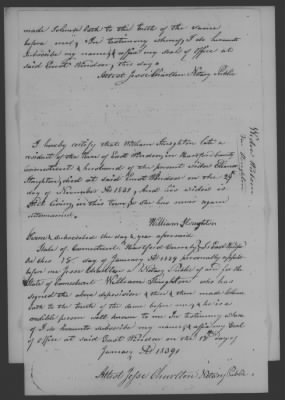 made Solemn Oath to the truth of the same
before me, & In testimony whereof, I do hereunto
subscribe my name, & affix my seal of Office at
said East Windsor, this day
Attest Jesse Charlton Notary Public
I hereby certify that William Stoughton late a
resident of the town of East Windsor, in Hartford County
Connecticut & husband of the present Widow
Stoughton, died at said East Windsor on the
of November AD And his widow is
still living, in this town, & she has never again
intermarried.
William Stoughton
Sworn & subscribed the day & year aforesaid
State of Connecticut, Hartford County, Ss East Windsor
On this 18 day of January AD 1839 personally appeared
before me Jesse Charlton a Notary Public of and for the
State of Connecticut William Stoughton, who has
signed the above deposition & then & there made Solemn
Oath to the truth of the same before me, & he is a
credible person well known to me In testimony whereof
I do hereunto subscribe my name, & affix my Seal
of office at said East Windsor on the 18th day of
January AD 1839
Attest Jesse Charlton Notary Public